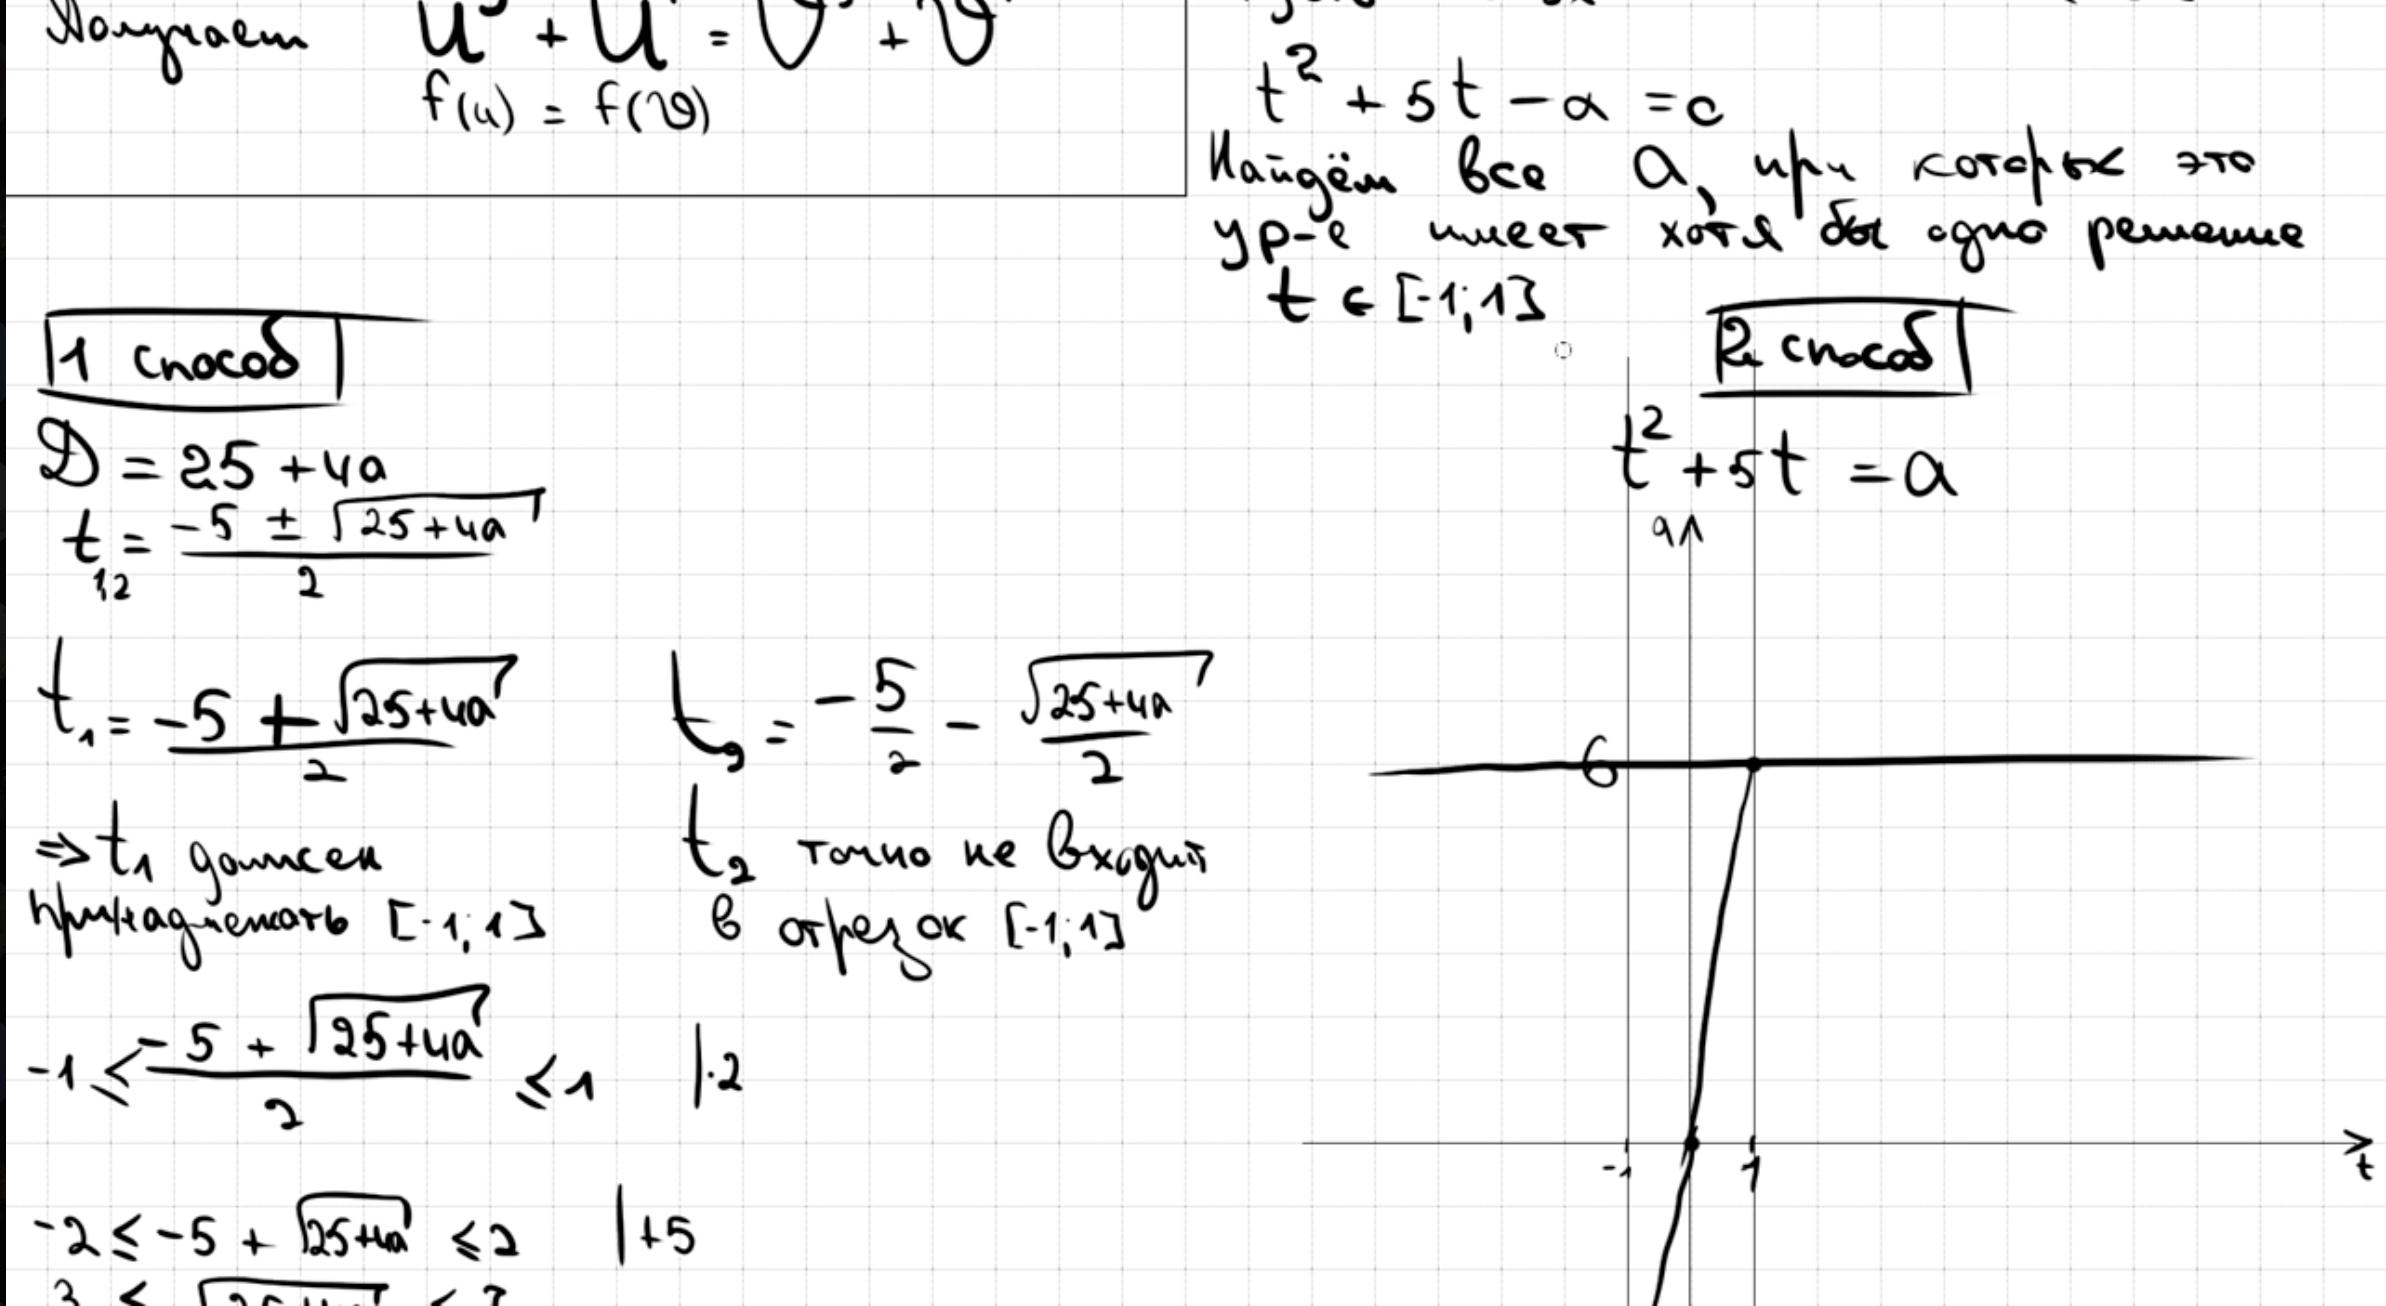 Получаем u⁵ + u = v⁵ + v
f(u) = f(v)
t² + 5t - a = 0
Найдём все a, при которых это
ур-е имеет хотя бы одно решение
t ∈ [-1; 1]
1 способ
D = 25 + 4a
t₁,₂ = (-5 ± √(25+4a)) / 2
t₁ = (-5 + √(25+4a)) / 2
⇒ t₁ должен
принадлежать [-1; 1]
t₂ = -5/2 - √(25+4a)/2
t₂ точно не входит
в отрезок [-1; 1]
-1 ≤ (-5 + √(25+4a)) / 2 ≤ 1 | ·2
-2 ≤ -5 + √(25+4a) ≤ 2 | +5
2 способ
t² + 5t = a
a
6
-1 1 t